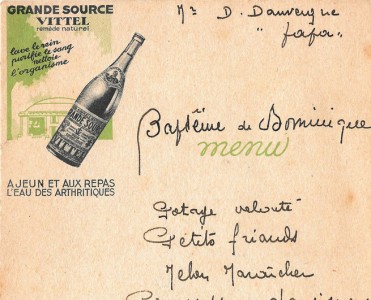 GRANDE SOURCE
VITTEL
remède naturel
lave le rein
purifie le sang
nettoie
l'organisme
GRANDE SOURCE
VITTEL
A JEUN ET AUX REPAS
L'EAU DES ARTHRITIQUES
Mr D. Dauvergne
"Jafa"
Baptême de Dominique
menu
Potage velouté
Petits friands
Melon Maraîcher